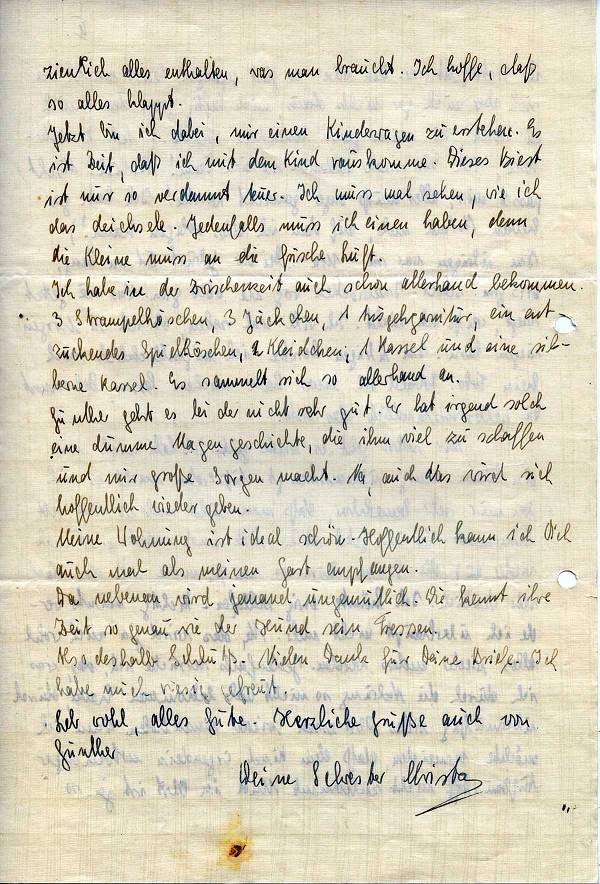 ziemlich alles enthalten, was man braucht. Ich hoffe, daß
so alles klappt.
Jetzt bin ich dabei, mir einen Kinderwagen zu erstehen. Es
ist Zeit, daß ich mit dem Kind rauskomme. Dieses Biest
ist nur so verdammt teuer. Ich muss mal sehen, wie ich
das deichsele. Jedenfalls muss ich einen haben, denn
die Kleine muss an die frische Luft.
Ich habe in der Zwischenzeit auch schon allerhand bekommen.
3 Strampelhöschen, 3 Jäckchen, 1 Ausgehgarnitur, ein ent-
zückendes Spielhöschen, 2 Kleidchen, 1 Rassel und eine sil-
berne Rassel. Es sammelt sich so allerhand an.
Günther geht es leider nicht sehr gut. Er hat irgend solch
eine dumme Magengeschichte, die ihm viel zu schaffen
und mir große Sorgen macht. Na, auch das wird sich
hoffentlich wieder geben.
Meine Wohnung ist ideal schön. Hoffentlich kann ich Dich
auch mal als meinen Gast empfangen.
Da nebenan wird jemand ungemütlich. Die kennt ihre
Zeit so genau wie der Hund sein Fressen.
Also deshalb Schluß. Vielen Dank für Deine Briefe. Ich
habe mich riesig gefreut.
Leb wohl, alles Gute. Herzliche Grüße auch von
Günther
Deine Schwester Christa